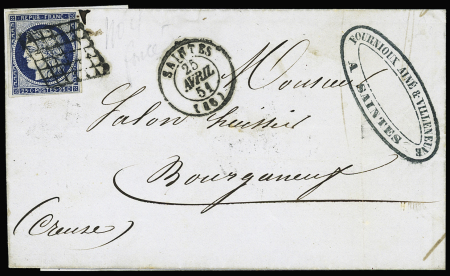 REPUB. FRANC.
25c POSTES 25c
SAINTES
25
AVRIL
51
(16)
FOURNIOUX AINÉ & VILLENEUVE
A SAINTES
Monsieur
Salon huissier
Bourganeuf
(Creuse)